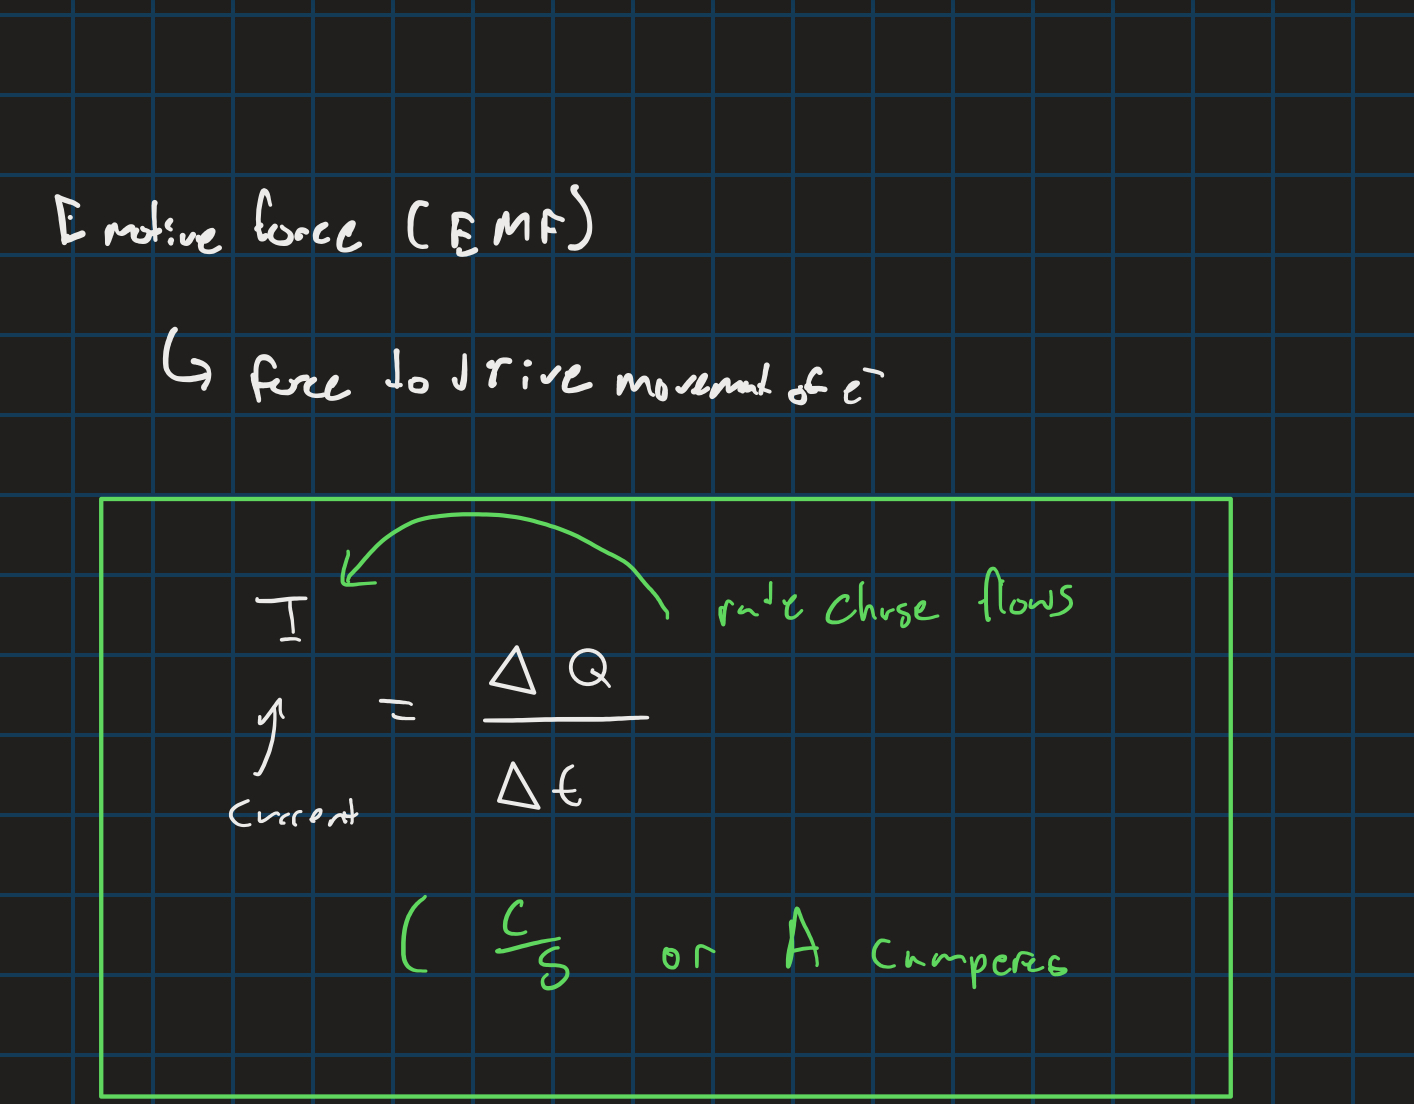 E motive force (EMF)
↳ force to drive movement of e⁻
rate charge flows
I = ΔQ / Δt
current
( C/s or A (amperes